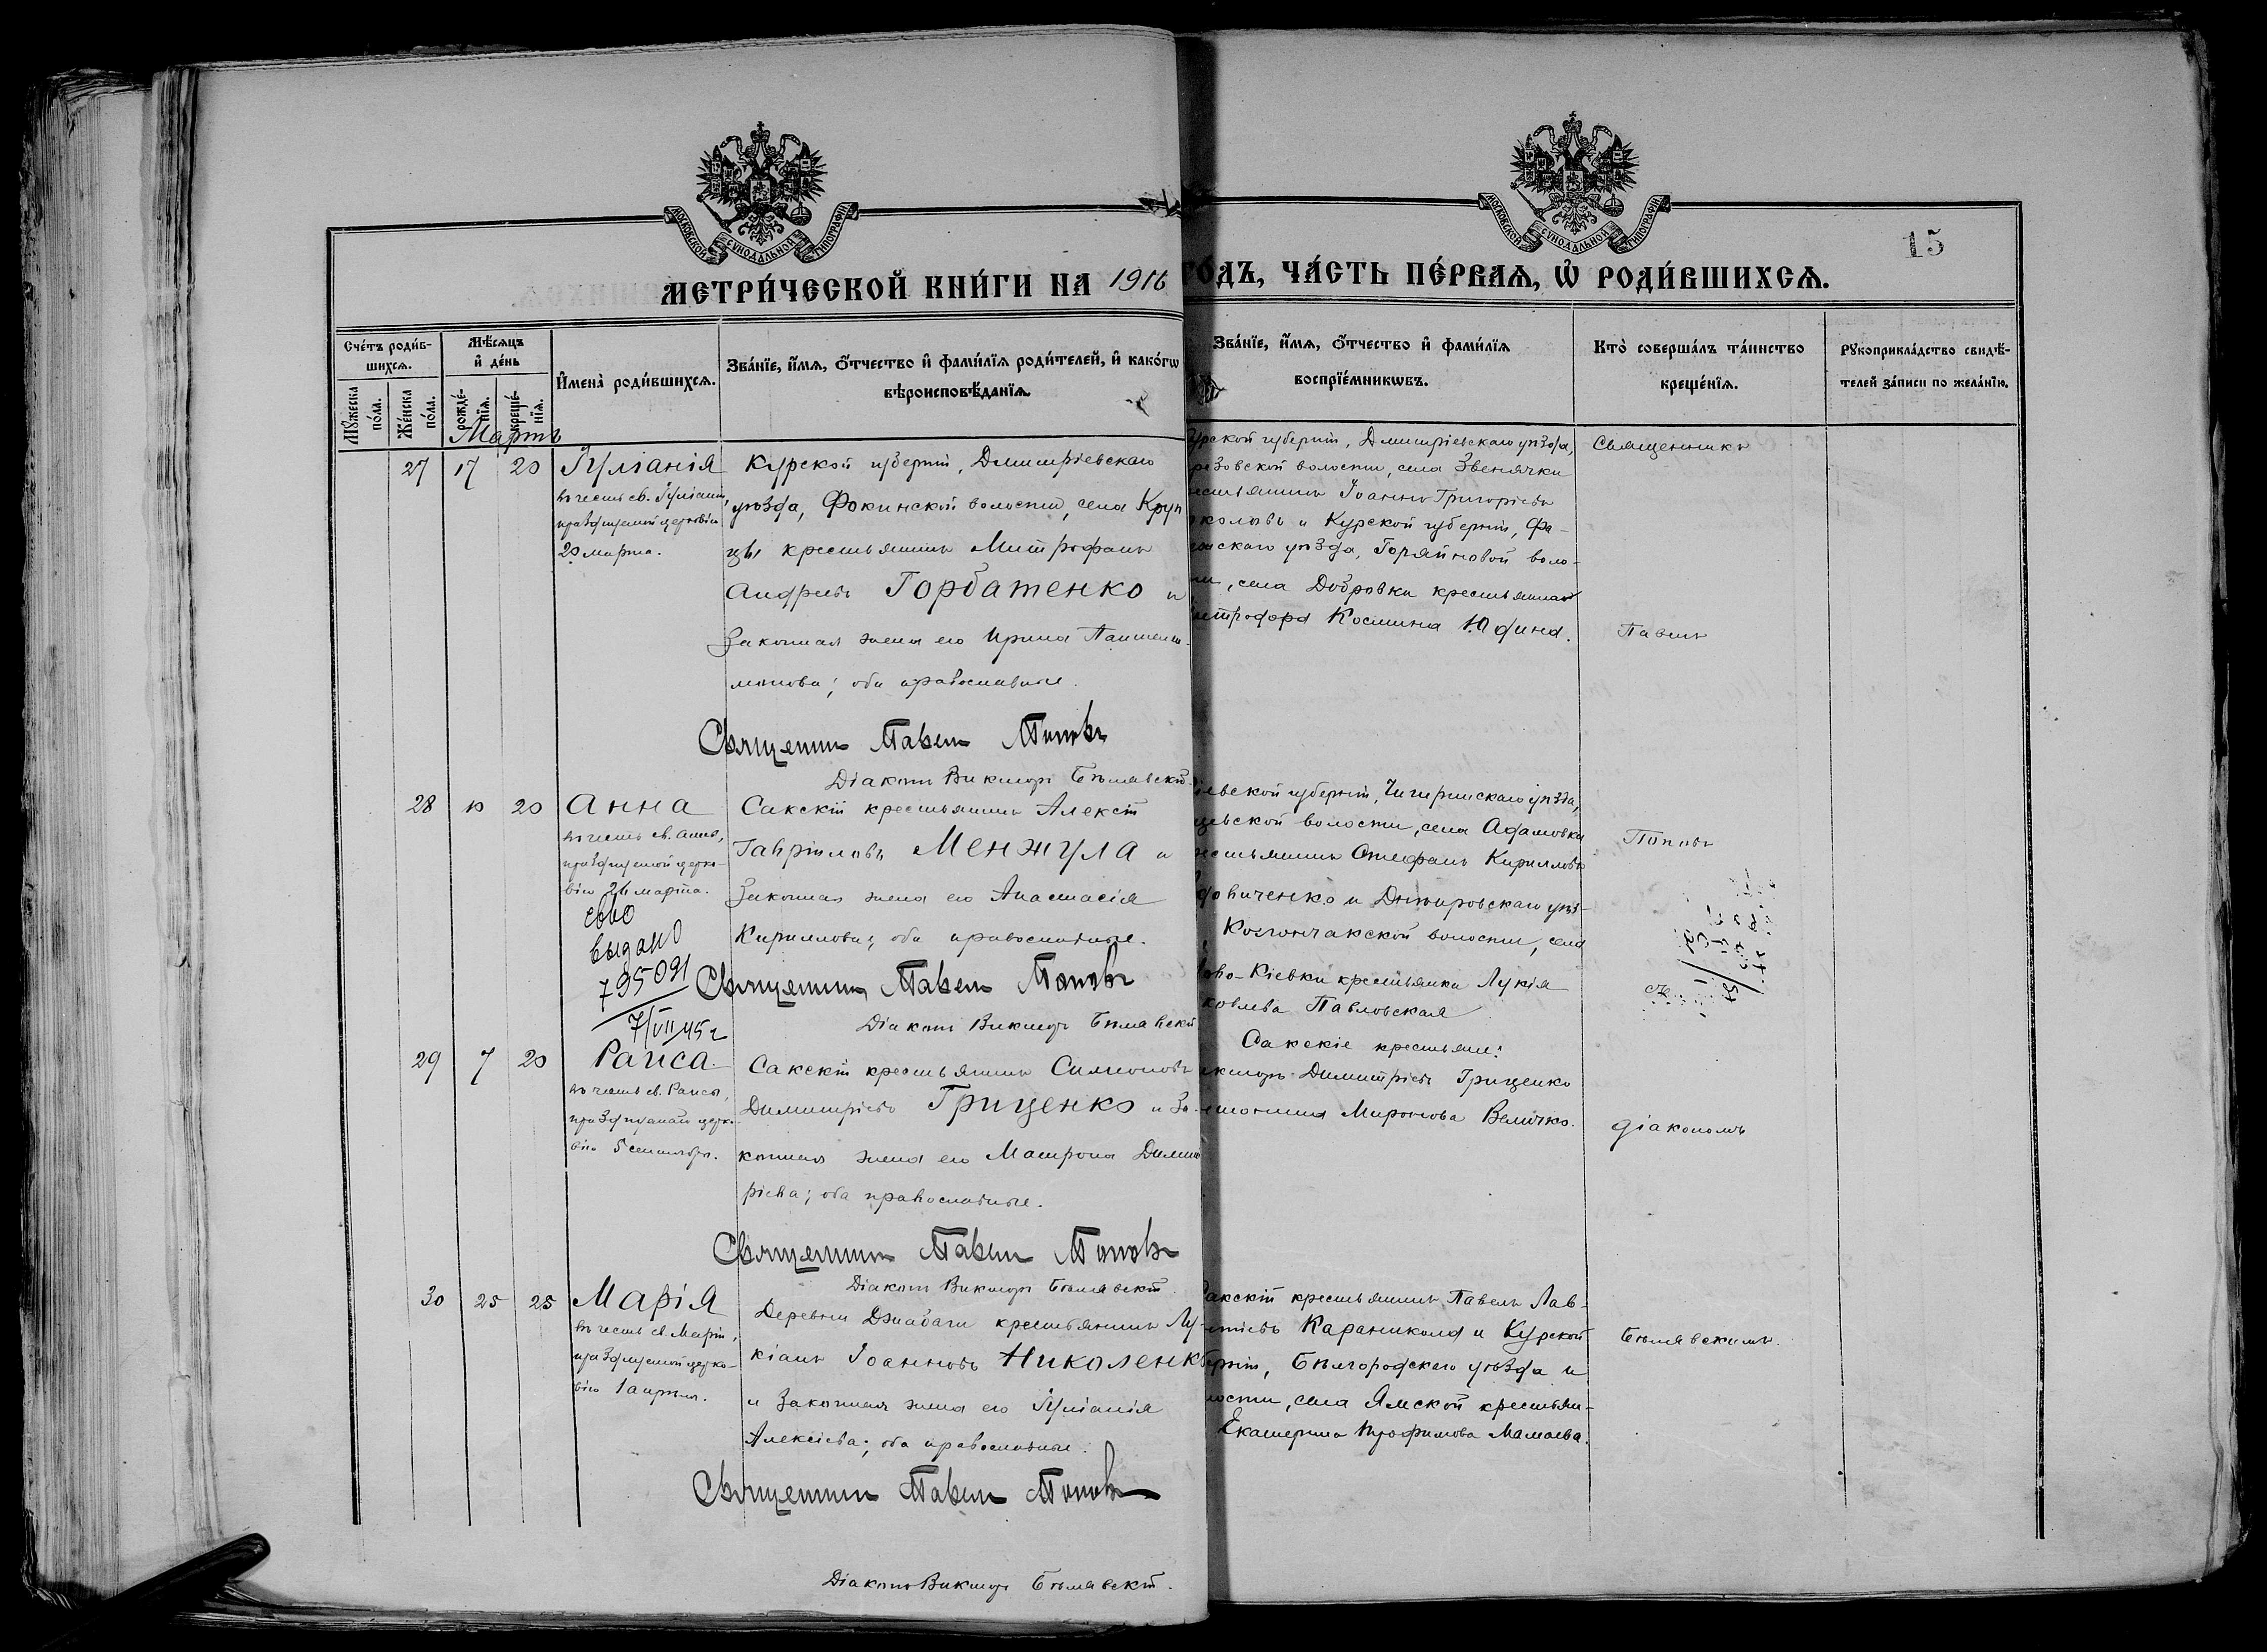 МОСКОВСКОЙ СѴНОДАЛЬНОЙ ТИПОГРАФІИ
МОСКОВСКОЙ СѴНОДАЛЬНОЙ ТИПОГРАФІИ
15
МЕТРИ́ЧЕСКОЙ КНИ́ГИ НА 1916 ГО́ДЪ, ЧА́СТЬ ПЕ́РВАѦ, Ѡ҆ РОДИ́ВШИХСѦ.
Сче́тъ роди́в-
шихсѧ.
Мꙋ́жеска по́ла.
Же́нска по́ла.
Мѣ́сѧцъ
и҆ де́нь
рожде́-
нїѧ.
креще́-
нїѧ.
И҆мена̀ роди́вшихсѧ.
Зва́нїе, и҆́мѧ, ѻ҆́тчество и҆ фами́лїѧ роди́телей, и҆ како́гѡ
вѣроисповѣ́данїѧ.
Зва́нїе, и҆́мѧ, ѻ҆́тчество и҆ фами́лїѧ
воспрїе́мникѡвъ.
Кто̀ соверша́лъ та́инство
креще́нїѧ.
Рꙋкоприкла́дство свидѣ́-
телей за́писи по жела́нїю.
Мартъ
27 17 20
Іуліанія
въ честь св. Іуліаніи,
празднуемой церковію
20 марта.
Курской губерніи, Димитріевскаго
уѣзда, Фокинской волости, села Круп
цы крестьянинъ Митрофанъ
Андреевъ Горбатенко и
законная жена его Ирина Пантелеи-
монова; оба православные.
Священникъ Павелъ Поповъ
Діаконъ Викторъ Бѣлявскій.
урской губерніи, Дмитріевскаго уѣзда,
резовской волости, села Звенячки
рестьянинъ Іоаннъ Григорьевъ
коловъ и Курской губерніи, Фа-
ежскаго уѣзда, Горяйновой воло-
ти, села Добровки крестьянка
Митродора Космина Юдина.
Священникъ
Павелъ
28 10 20
Анна
въ честь св. Анны,
празднуемой церко-
вію 26 марта.
св-во
выдано
795091
7/VII 45 г
Сакскій крестьянинъ Алексій
Гавріиловъ Менжула и
законная жена его Анастасія
Кириллова; оба православные.
Священникъ Павелъ Поповъ
Діаконъ Викторъ Бѣлявскій
іевской губерніи, Чигиринскаго уѣзда,
цевской волости, села Адамовки
рестьянинъ Стефанъ Кирилловъ
довиченко и Днѣпровскаго уѣз-
Когончакской волости, села
ово-Кіевки крестьянка Лукія
ковлева Павловская
Поповъ
29 7 20
Раиса.
въ честь св. Раисы,
празднуемой церко-
вію 5 сентября.
Сакскій крестьянинъ Симеонъ
Димитріевъ Гриценко и за-
конная жена его Матрона Димит
ріева; оба православные.
Священникъ Павелъ Поповъ
Діаконъ Викторъ Бѣлявскій.
Сакскіе крестьяне:
икторъ Димитріевъ Гриценко
Миронова Величко.
діакономъ
30 25 25
Марія
въ честь св. Маріи,
празднуемой церко-
вію 1 апрѣля.
Деревни Джабачи крестьянинъ Лу-
кіанъ Іоанновъ Николенко
и законная жена его Іуліанія
Алексіева; оба православные.
Священникъ Павелъ Поповъ
Діаконъ Викторъ Бѣлявскій.
Сакскій крестьянинъ Павелъ Лав-
ентіевъ Караникола и Курской
берніи, Бѣлгородскаго уѣзда и
лости, села Ямской крестьян-
Екатерина Трофимова Мамаева.
Бѣлявскимъ.